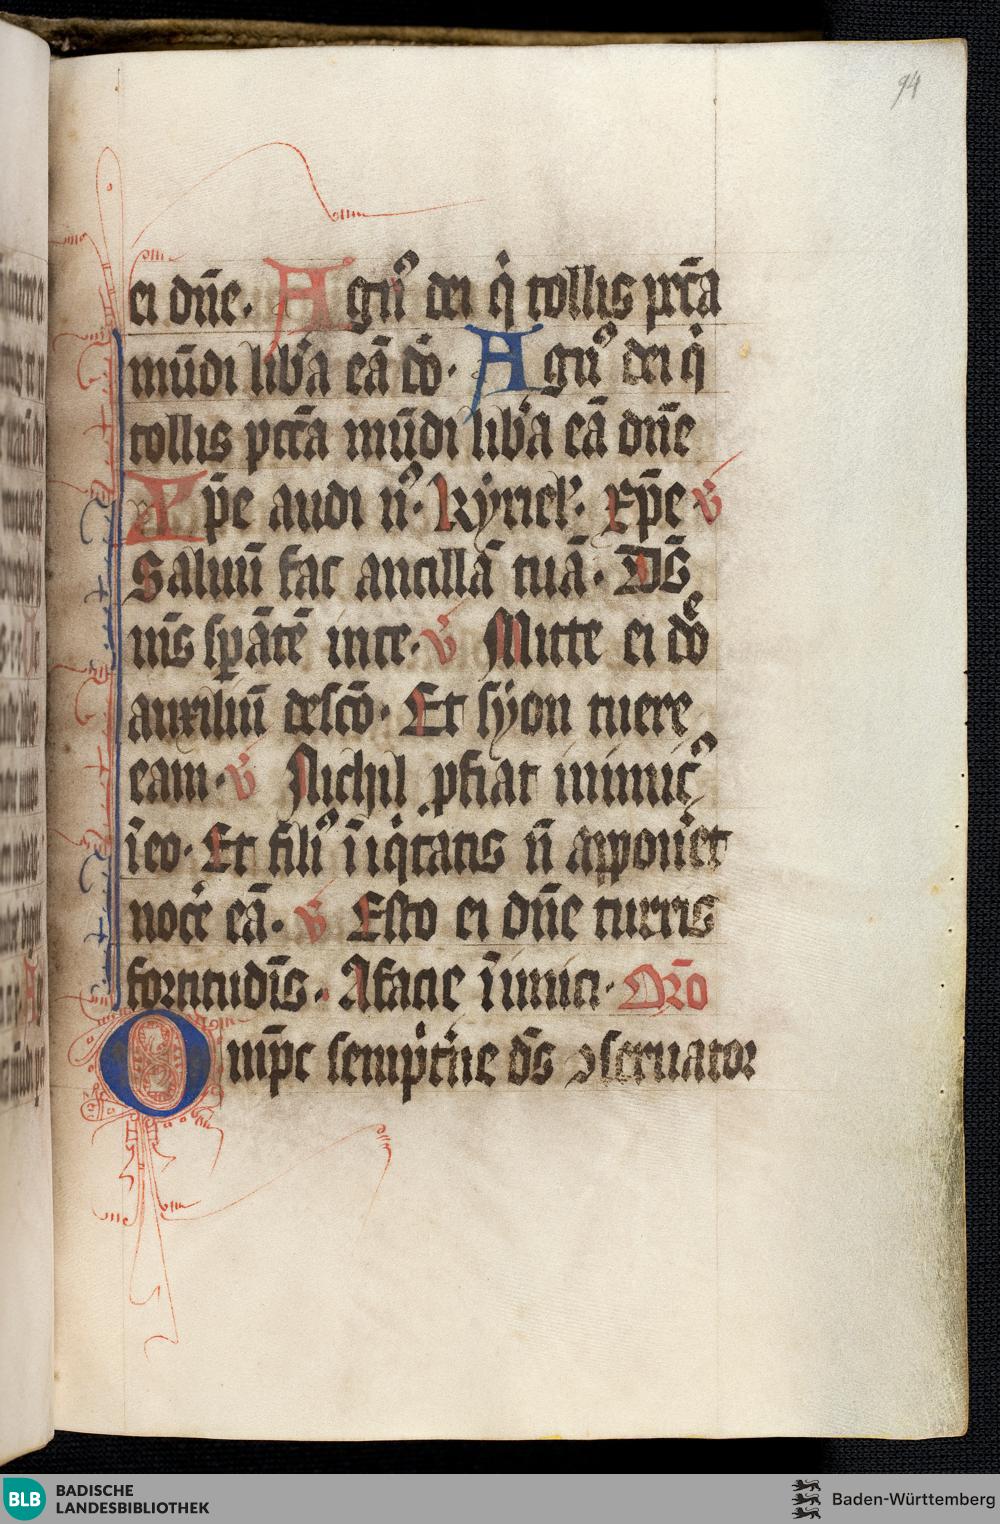 94
ei dn̄e. Agn᷒ dei qͥ tollis pctā
mūdi lib'a eā dō. Agn᷒ dei qͥ
tollis pctā mūdi lib'a eā dn̄e
Xp̄e audi n᷒. Kyriel᷒. Xp̄e v̄
Saluū fac ancillā tuā. Ds̄
m̄s spātē in te. v̄ Mitte ei dōe
auxiliū de scō. Et syon tuere
eam. v̄ Nichil ꝓfiat inimic᷒
ī eo. Et fili᷒ īiqͥtatis n̄ apponet
noce᷒ eā. v̄ Esto ei dn̄e turris
fortitudīs. A facie īimici. Oro᷒
Omp̄s sempit'ne ds̄ ꝯseruator
BLB
BADISCHE
LANDESBIBLIOTHEK
Baden-Württemberg